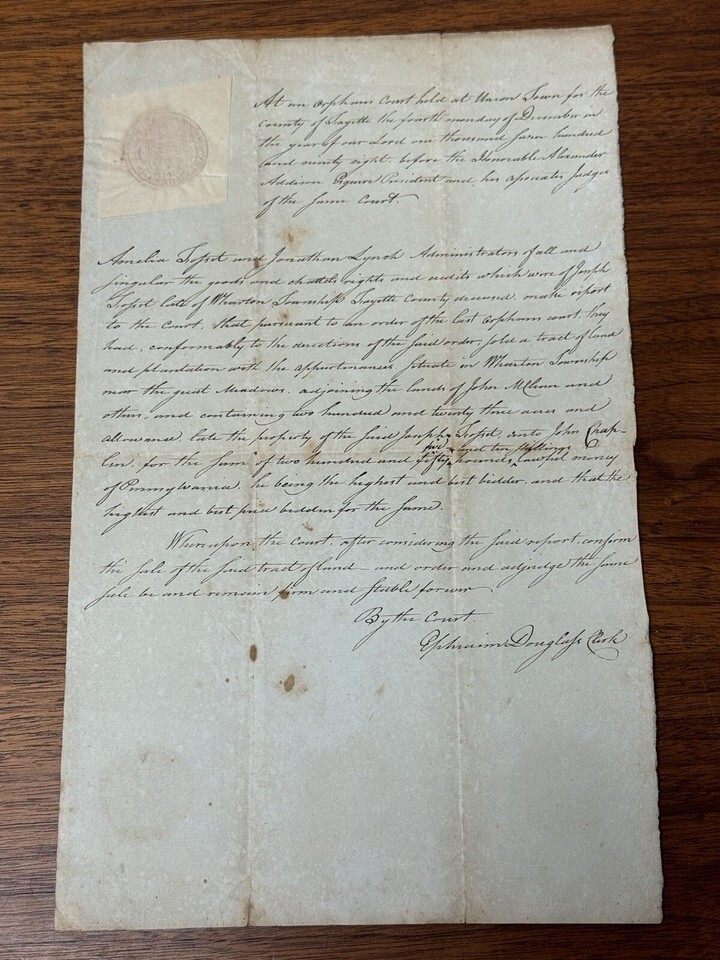 At an Orphans Court held at Union Town for the
County of Fayette the fourth monday of December in
the year of our Lord one thousand seven hundred
and ninety eight, before the Honorable Alexander
Addison Esquire President and his associates Judges
of the same Court.
Amelia Tissot and Jonathan Lynch Administrators of all and
singular the goods and chattels rights and credits which were of Joseph
Tissot late of Wharton Township Fayette County deceased, make report
to the court, that pursuant to an order of the last orphans court, they
had, conformably to the directions of the said order, sold a tract of land
and plantation with the appurtenances situate in Wharton Township
near the great Meadows, adjoining the lands of John McClean and
others, and containing two hundred and twenty three acres and
allowance, late the property of the said Joseph Tissot, unto John Chap-
five and ten shillings
lin, for the sum of two hundred and fifty pounds, lawful money
of Pennsylvania, he being the highest and best bidder, and that the
highest and best price bidden for the same.
Whereupon the Court, after considering the said report, confirm
the sale of the said tract of land and order and adjudge the same
sale be and remain firm and stable forever
By the Court.
Ephraim Douglass Clerk